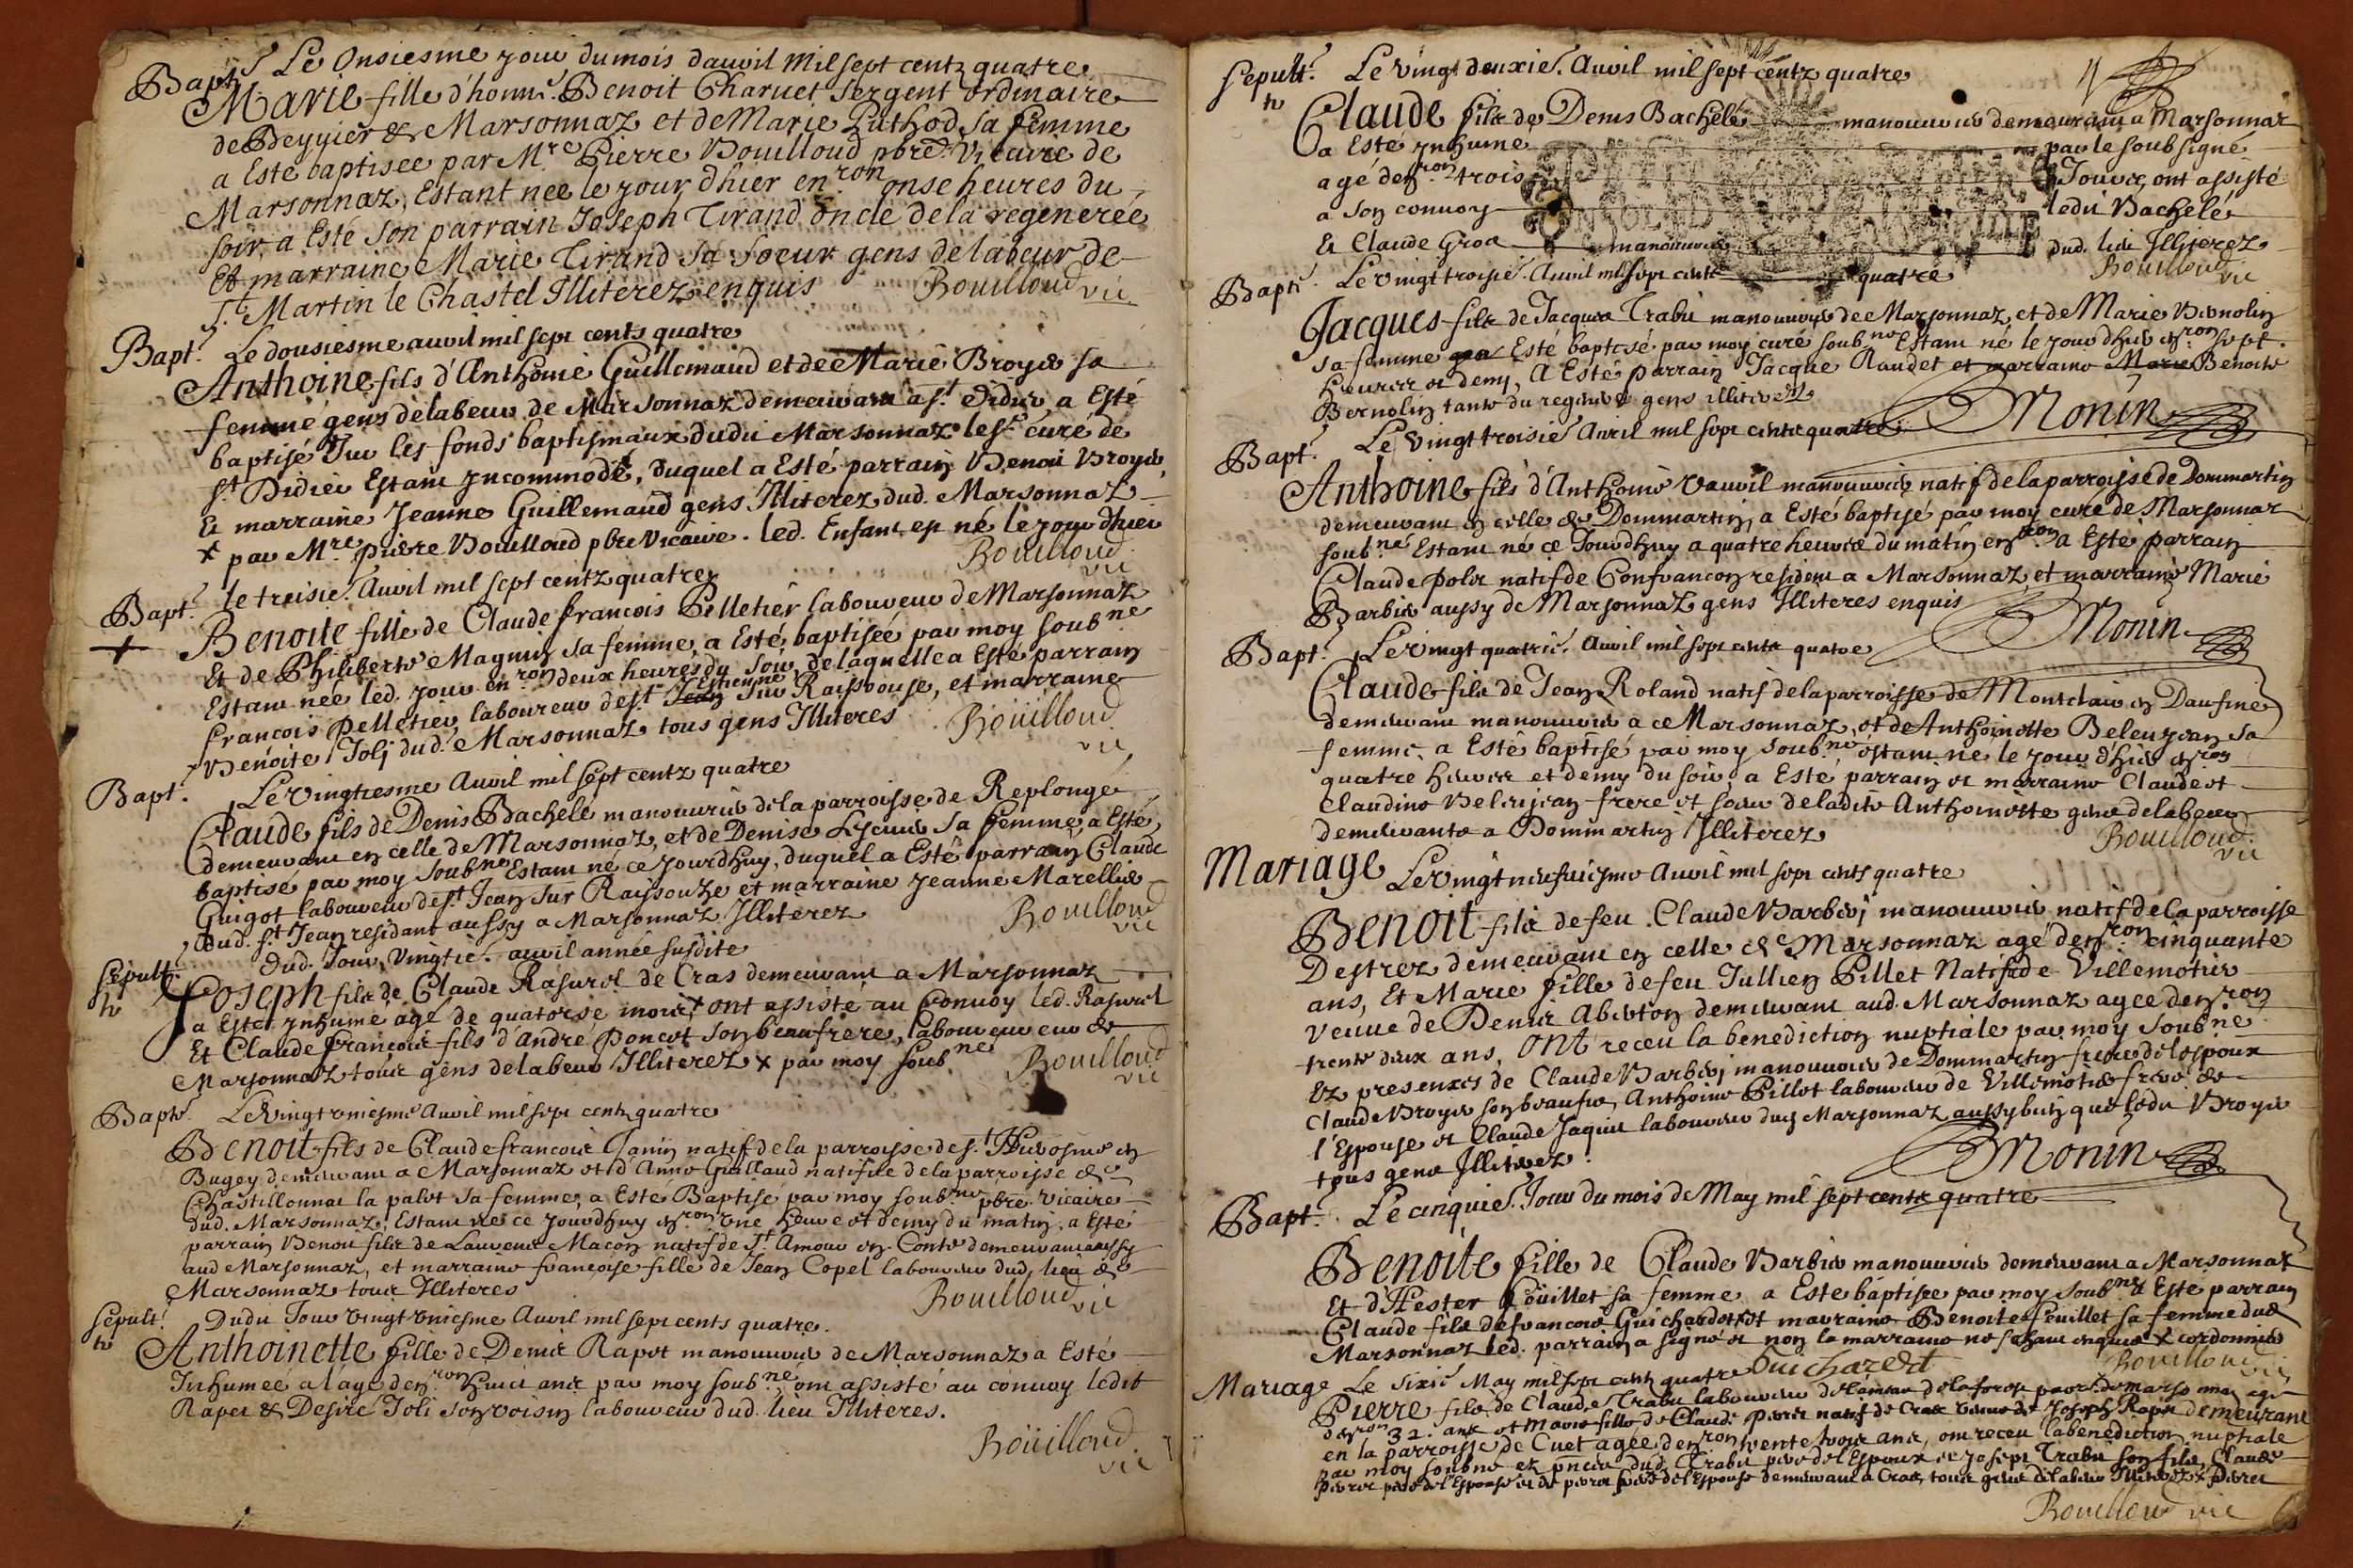 Bapt. Le Onsiesme jour du mois dauvil Mil sept centz quatre
Marie fille d'honn. Benoit Charuet sergent ordinaire
de Beyvier & Marsonnaz et de Marie Puthod sa femme
a Esté baptisee par Mre Pierre Bouilloud pbre Vicaire de
Marsonnaz, Estant née le jour dhier enron onse heures du
soir, a Esté son parrain Joseph Tirand oncle de la regenerée
Et marraine Marie Tirand sa soeur gens de labeur de
St. Martin le Chastel Illiterez enquis Bouilloud vic
Bapt. Le dousiesme auvil mil sept cents quatre
Anthoine fils d'Anthoine Guillemaud et de Marie Broyer sa
femme gens de labeur de Marsonnaz demeurant a st. Didier a Esté
baptisé sur les fonds baptismaux dudit Marsonnaz le sr. curé de
st. Didier Estant incommodé, duquel a Esté parrain Benoit Broyer
Et marraine Jeanne Guillemaud gens Illiterez dud. Marsonnaz
x par Mre pierre Bouilloud pbre Vicaire. led. Enfant est né le jour dhier
Bouilloud vic
Bapt. le treisie. Auvil mil sept centz quatre
Benoite fille de Claude francois Pelletier laboureur de Marsonnaz
Et de Philiberte Magnin sa femme, a Esté baptisée par moy soubne
Estant née led. jour enron deux heures du soir, de laquelle a Esté parrain
francois Pelletier laboureur de st. Estienne sur Raissouse, et marraine
Benoite Joli dud. Marsonnaz tous gens Illiteres Bouilloud
vic
Bapt. Le Vingtiesme Auvil mil sept centz quatre
Claude fils de Denis Bachelé manouvrier de la parroisse de Replonge
demeurant en celle de Marsonnaz, et de Denise sa femme, a Esté
baptisé par moy soubne Estant né ce jourdhuy, duquel a Esté parrain Claude
Guigot laboureur de st. Jean sur Rayssouze et marraine Jeanne Marellier
dud. st. Jean residant aussy a Marsonnaz Illiterez Bouilloud
vic
Sepult. Dud. Jour Vingtie. auvil année susdite
Joseph fils de Claude Rasurel de Cras demeurant a Marsonnaz
a Esté Inhumé agé de quatorse mois x ont assisté au Convoy led. Rasurel
Et Claude francois fils d'André Poncet son beaufrere, laboureur de
Marsonnaz tous gens de labeur Illiterez x par moy soubne Bouilloud
vic
Bapte. Le Vingt uniesme Auvil mil sept centz quatre
Benoit fils de Claude francois Janin natif de la parroisse de st. Hierosme en
Bugey demeurant a Marsonnaz et d'Anne Guillaud natifve de la parroisse de
Chastillonnat la palut sa femme, a Esté Baptisé par moy soubne pbre Vicaire
dud. Marsonnaz, Estant né ce jourdhuy enron Une heure et demy du matin, a Esté
parrain Benoit fils de Laurent Macon natif de st Amour en Conté demeurant aussy
aud Marsonnaz, et marraine francoise fille de Jean Copel laboureur dud. lieu de
Marsonnaz tous Illiteres Bouilloud vic
Sepult. Dudit Jour Vingt Uniesme Auvil mil sept cents quatre.
Anthoinette fille de Denis Rapet manouvrier de Marsonnaz a Esté
Inhumee a lage denron huict ans par moy soubne, ont assisté au convoy ledit
Rapet & Desiré Joli son voisin laboureur dud. lieu Illiteres.
Bouilloud
vic
Sepult. Le Vingt deuxie. Auvil mil sept centz quatre
Claude fils de Denis Bachelé manouvrier demeurant a Marsonnaz
a Esté Inhumé par le soubsigné
agé denron trois Jours, ont assisté
a son convoy ledit Bachelé
Et Claude Gros manouvrier dud. lieu Illiterez
Bouilloud vic
Bapt. Le Vingt troisie. Auvil mil sept cents quatre
Jacques fils de Jacques Trabu manouvrier de Marsonnaz, et de Marie Bernolin
sa femme a Esté baptisé par moy curé soubne Estant né le jour dhier enron sept
heures et demy, A Esté parrain Jacque Raudet et marraine Marie Benoite
Bernolin tante du regeneré gens illiterez
Monin
Bapt. Le Vingt troisie Avril mil sept cents quatre
Anthoine fils d'Anthoine Vauvil manouvrier natif de la parroisse de Dommartin
demeurant en celle de Dommartin, a Esté baptisé par moy curé de Marsonnaz
soubne Estant né ce Jourdhuy a quatre heures du matin enron a Esté parrain
Claude Polir natif de Confrancon resident a Marsonnaz et marraine Marie
Barbier aussy de Marsonnaz gens Illiteres enquis Monin
Bapt. Le Vingt quatrie. Auvil mil sept cents quatre
Claude fils de Jean Roland natif de la parroisse de Montclair en Daufiné
demeurant manouvrier a ce Marsonnaz, et de Anthoinette Belenjean sa
femme, a Esté baptisé par moy soubne estant né le jour dhier enron
quatre heures et demy du soir a Esté parrain et marraine Claude et
Claudine Belenjean frere et soeur de ladite Anthoinette gens de labeur
demeurants a Dommartin Illiterez Bouilloud
vic
Mariage Le Vingt neufviesme Auvil mil sept cents quatre
Benoit fils de feu Claude Barbier manouvrier natif de la parroisse
Destrez demeurant en celle de Marsonnaz agé denron cinquante
ans, Et Marie fille de feu Jullien Pillet Natifve de Villemotier
veuve de Denis Abeton demeurant aud. Marsonnaz agée denron
trente deux ans, Ont receu la benediction nuptiale par moy soubne
Ez presences de Claude Barbier manouvrier de Dommartin frere de lespoux
Claude Broyer son beaufre, Anthoine Pillet laboureur de Villemotier frere de
l'Espouse et Claude Jaquin laboureur dud Marsonnaz aussy bien que ledit Broyer
tous gens Illiterez. Monin
Bapt. Le cinquie. Jour du mois de May mil sept cents quatre
Benoite fille de Claude Barbier manouvrier demeurant a Marsonnaz
Et d'Hester feuillet sa femme a Esté baptisee par moy soubne a Esté parrain
Claude fils de francois Guichardet x Et marraine Benoite feuillet sa femme dud
Marsonnaz led. parrain a signé et non la marraine ne sachant enquis x cordonnier
Guichardet Bouilloud vic
Mariage Le sixie May mil sept cents quatre
Pierre fils de Claude Trabu laboureur de la forest parr. de Marsonnaz agé
denron 32 ans et Marie fille de Claude Pierre natif de Cras veuve de Joseph Rapet demeurant
en la parroisse de Cuet agée denron trente trois ans, ont receu la benediction nuptiale
par moy soubne en pnce dud. Trabu pere de l'Espoux, et Joseph Trabu son fils, Claude
pere de l'Espouse et de frere de l'Espouse demeurant a Cras, tous gens de labeur Illiterez
Bouilloud vic